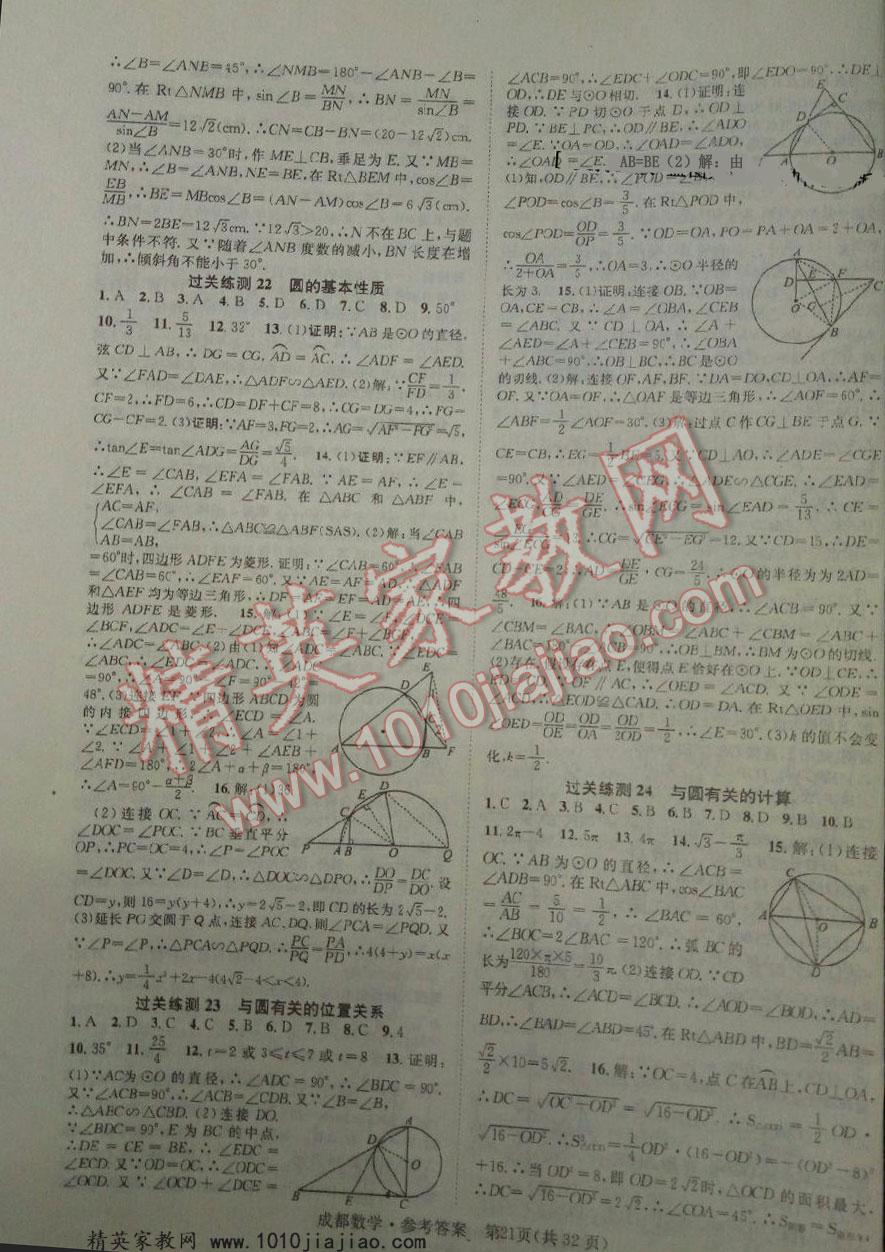 ∴∠B=∠ANB=45°,∴∠NMB=180°-∠ANB-∠B=
90°.在 Rt△NMB 中,sin∠B=MN/BN,∴BN=MN/sin∠B=
(AN-AM)/sin∠B=12√2(cm).∴CN=CB-BN=(20-12√2)cm.
(2)当∠ANB=30°时,作 ME⊥CB,垂足为 E.又∵MB=
MN,∴∠B=∠ANB,NE=BE.在Rt△BEM中,cos∠B=
EB/MB,∴BE=MBcos∠B=(AN-AM)cos∠B=6√3(cm).
∴BN=2BE=12√3cm.∵12√3>20,∴N 不在 BC 上,与题
中条件不符.又∵随着∠ANB 度数的减小,BN 长度在增
加,∴倾斜角不能小于 30°.
过关练测 22 圆的基本性质
1.A 2.B 3.A 4.B 5.D 6.D 7.C 8.D 9.50°
10.1/3 11.5/13 12.32° 13.(1)证明:∵AB 是⊙O 的直径,
弦 CD⊥AB,∴DG=CG,AD=AC,∴∠ADF=∠AED.
又∵∠FAD=∠DAE,∴△ADF∽△AED.(2)解:∵CF/FD=1/3,
CF=2,∴FD=6,∴CD=DF+CF=8,∴CG=DG=4,∴FG=
CG-CF=2.(3)证明:∵AF=3,FG=2,∴AG=√(AF²-FG²)=√5,
∴tan∠E=tan∠ADG=AG/DG=√5/4. 14.(1)证明:∵EF∥AB,
∴∠E=∠CAB,∠EFA=∠FAB.∵AE=AF,∴∠E=
∠EFA,∴∠CAB=∠FAB.在△ABC 和△ABF 中,
AC=AF,
∠CAB=∠FAB,∴△ABC≌△ABF(SAS).(2)解:当∠CAB
AB=AB,
=60°时,四边形 ADFE 为菱形.证明:∵∠CAB=60°,∴∠FAB
=∠CAB=60°,∴∠EAF=60°.又∵AE=AF=AD,∴△ADF
和△AEF 均为等边三角形,∴DF=AE=EF=AD=AE,∴四
边形 ADFE 是菱形. 15.解:(1)∵∠E=∠F,∠DCE=
∠BCF,∠ADC=∠E+∠DCE,∠ABC=∠F+∠BCF,
∴∠ADC=∠ABC.(2)由(1)知∠ADC=∠ABC,∵∠EDC=
48°.(3)连接 EF.∵四边形 ABCD 为圆
的内接四边形,∴∠ECD=∠A.
∵∠ECD=∠1+∠2,∴∠A=∠1+
∠2.∵∠A+∠1+∠2+∠AEB+
∠AFD=180°,∴2∠A+α+β=180°,
∴∠A=90°-(α+β)/2. 16.解:(1)36°.
(2)连接 OC.∵AC=CD,∴
∠DOC=∠POC.∵BC 垂直平分
OP,∴PC=OC=4,∴∠P=∠POC
=∠DOC.又∵∠D=∠D,∴△DOC∽△DPO,∴DO/DP=DC/DO.设
CD=y,则 16=y(y+4),∴y=2√5-2,即 CD 的长为 2√5-2.
(3)延长 PG交圆于 Q 点,连接 AC、DQ.则∠PCA=∠PQD.又
∵∠P=∠P,∴△PCA∽△PQD.∴PC/PQ=PA/PD,∴4(4+y)=x(x
+8).∴y=1/4x²+2x-4(4√2-4<x<4).
过关练测 23 与圆有关的位置关系
1.A 2.D 3.C 4.C 5.B 6.D 7.B 8.C 9.4
10.35° 11.25/4 12.t=2 或 3≤t≤7 或 t=8 13.证明:
(1)∵AC为⊙O 的直径,∴∠ADC=90°,∴∠BDC=90°.
又∵∠ACB=90°,∴∠ACB=∠CDB.又∵∠B=∠B,
∴△ABC∽△CBD.(2)连接 DO.
∵∠BDC=90°,E 为 BC 的中点,
∴DE=CE=BE,∴∠EDC=
∠ECD.又∵OD=OC,∴∠ODC=
∠OCD.又∵∠OCD+∠DCE=
∠ACB=90°,∴∠EDC+∠ODC=90°,即∠EDO=90°,∴DE⊥
OD,∴DE 与⊙O 相切. 14.(1)证明:连
接 OD.∵PD 切⊙O 于点 D,∴OD⊥
PD.∵BE⊥PC,∴OD∥BE,∴∠ADO
=∠E.∵OA=OD,∴∠OAD=∠ADO,
∴∠OAD=∠E. AB=BE (2)解:由
(1)知,OD∥BE,∴∠POD
∠POD=cos∠B=3/5.在 Rt△POD 中,
cos∠POD=OD/OP=3/5.∵OD=OA,PO=PA+OA=2+OA,
∴OA/(2+OA)=3/5,∴OA=3.∴⊙O半径的
长为 3. 15.(1)证明,连接OB.∵OB=
OA,CE=CB,∴∠A=∠OBA,∠CEB
=∠ABC.又∵CD⊥OA,∴∠A+
∠AED=∠A+∠CEB=90°,∴∠OBA
+∠ABC=90°.∴OB⊥BC,∴BC 是⊙O
的切线.(2)解,连接 OF,AF,BF.∵DA=DO,CD⊥OA,∴AF=
OF.又∵OA=OF,∴△OAF 是等边三角形,∴∠AOF=60°,∴
∠ABF=1/2∠AOF=30°.(3)解:过点 C 作 CG⊥BE 于点 G.∵
CE=CB,∴EG=1/2BE=5.又∵CD⊥AO,∴∠ADE=∠CGE
=90°.又∵∠AED=∠CEG,∴△ADE∽△CGE,
∴CE=
=13,∴CG=√(CE²-EG²)=12.又∵CD=15,∴DE=
CD-CE=2.∴AD=DE/GE·CG=24/5.∴⊙O的半径为为 2AD=
48/5. 16.解:(1)∵AB是⊙O的直径,∴∠ACB=90°.又∵
∠CBM=∠BAC,∴∠OBM=∠CBM+∠ABC=∠ABC+
∠BAC=180°-∠ACB=90°,∴OB⊥BM,∴BM 为⊙O 的切线.
使得点 E 恰好在⊙O上.∵OD⊥CE,
∴∠OED=∠ACD.又∵∠ODE=
∴△EOD≌△CAD.∴OD=DA.在 Rt△OED 中,sin
∠OED=OD/OE=OD/OA=OD/2OD=1/2,∴∠E=30°.(3)k 的值不会变
化,k=1/2.
过关练测 24 与圆有关的计算
1.C 2.A 3.B 4.C 5.B 6.D 7.D 8.D 9.B 10.B
11.2π-4 12.5π 13.4π 14.√3-π/3 15.解:(1)连接
OC.∵AB 为⊙O 的直径,∴∠ACB=
∠ADB=90°.在 Rt△ABC 中,cos∠BAC
=AC/AB=5/10=1/2,∴∠BAC=60°.
∴∠BOC=2∠BAC=120°.∴弧 BC 的
长为(120×π×5)/180=10/3π.(2)连接 OD.∵CD
平分∠ACB,∴∠ACD=∠BCD.∴∠AOD=∠BOD,∴AD=
BD,∴∠BAD=∠ABD=45°.在 Rt△ABD 中,BD=√2/2AB=
√2/2×10=5√2. 16.解:∵OC=4,点 C 在AB上,CD⊥OA,
∴DC=√(OC²-OD²)=√(16-OD²).∴S△OCD=1/2OD·
√(16-OD²).∴S²△OCD=1/4OD²·(16-OD²)=-(OD²-8)²
+16.∴当 OD²=8,即 OD=2√2时,△OCD 的面积最大.
∴DC=√(16-OD²)=2√2,∴∠COA=45°.∴S阴影=S
成都数学·参考答案 第21页(共 32 页)
精英家教网
www.1010jiajiao.com
精英家教网 www.1010jiajiao.com